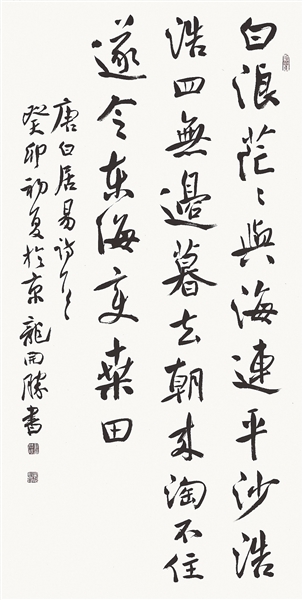 白浪茫〻與海連平沙浩
浩四無邊暮去朝来淘不住
遂令東海變桑田
唐白居易詩
癸卯初夏於京龍開勝書